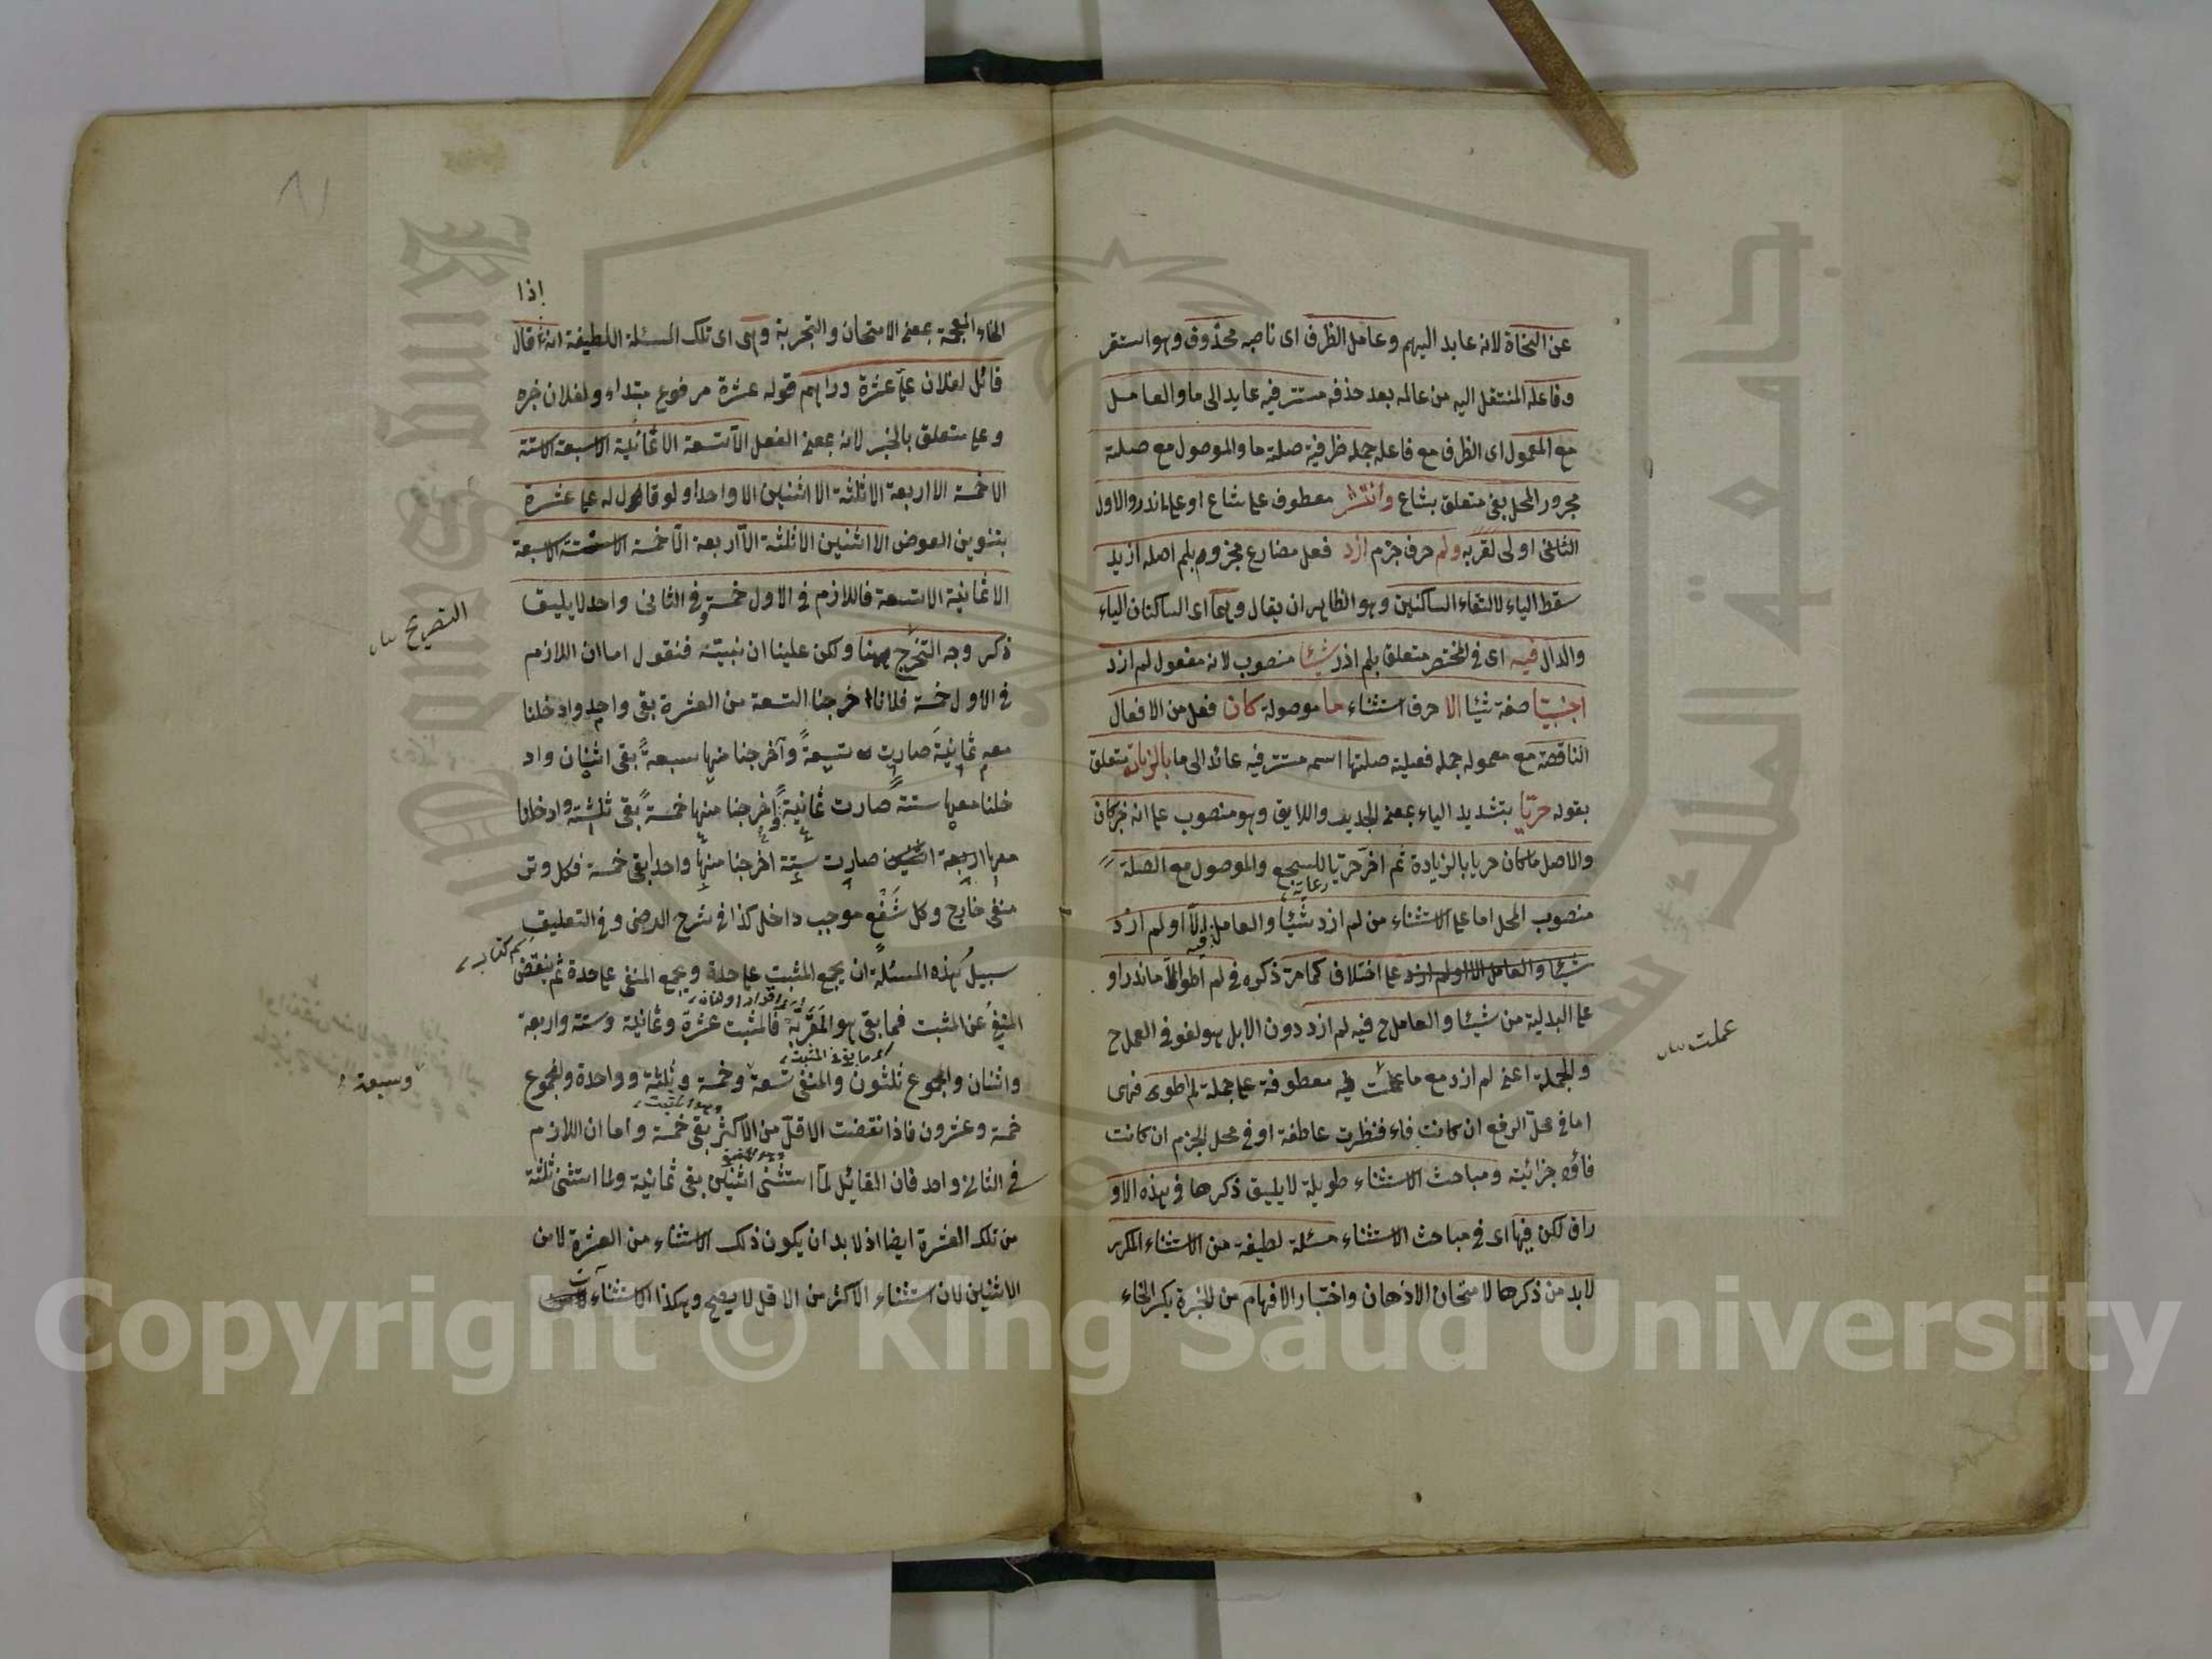 عن النحاة لانه عايد اليهم وعامل الظرف اى ناصبه محذوف وهو استقر
وفاعله المنتقل اليه من عالمه بعد حذفه مستتر فيه عايد الى ما والعامل
مع المعمول اى الظرف مع فاعله جملة ظرفية صلة ما والموصول مع صلته
مجرور المحل بفى متعلق بشاع وانتشر معطوف على شاع او على ندر والاول
الثانى اولى لقربه ولم حرف جزم ازد فعل مضارع مجزوم بلم اصله ازيد
سقط الياء لالتقاء الساكنين وهو الظاهر ان يقال وهما اى الساكنان الياء
والدال فيه اى فى المختصر متعلق بلم ازد شيئا منصوب لانه مفعول لم ازد
اجنبيّا صفة شيئا الا حرف استثناء ما موصولة كان فعل من الافعال
الناقصة مع معموله جملة فعلية صلتها اسمه مستتر فيه عائد الى ما بالزيادة متعلق
بقوله حريّا بتشديد الياء بمعنى الجدير واللايق وهو منصوب على انه خبر كان
والاصل ما كان حريا بالزيادة ثم اخر حريّا للسجع والموصول مع الصلة
رعاية
منصوب المحل اما على الاستثناء من لم ازد شيئا والعامل فيه الّا او لم ازد
شيئا والعامل الا او لم ازد على اختلاف كما مرّ ذكره فى لم اطول الّا ما ندر او
على البدلية من شيئا والعامل ح فيه لم ازد دون الا بل هو لغو فى العمل ح
والجملة اعنى لم ازد مع ما عملت فيه معطوفة على جملة لم اطول فهى
عملت
اما فى محلّ الرفع ان كانت فاء فنظرت عاطفة او فى محل الجزم ان كانت
فاؤه جزائية ومباحث الاستثناء طويلة لا يليق ذكرها فى هذه الاو
راق لكن فيها اى فى مباحث الاستثناء مسئلة لطيفة من الاستثناء المكرر
لا بد من ذكرها لامتحان الاذهان واختبار الافهام من الخبرة بكسر الخاء
اذا
الخاء المعجمة بمعنى الامتحان والتجربة وهى اى تلك المسئلة اللطيفة انه قال
قائل لفلان علىّ عشرة دراهم قوله عشرة مرفوع مبتداء ولفلان خبره
وعلى متعلق بالخبر لانه بمعنى الفعل الّا تسعة الا ثمانية الا سبعة الا ستة
الا خمسة الا اربعة الا ثلثة الا اثنين الا واحدا ولو قال له على عشرة
بتنوين العوض الا اثنين الا ثلثة الّا اربعة الّا خمسة الا ستة الا سبعة
الا ثمانية الا تسعة فاللازم فى الاول خمسة وفى الثانى واحد لا يليق
ذكر وجه التخرج ههنا ولكن علينا ان نبيّنه فنقول اما ان اللازم
التصريح
فى الاول خمسة فلانا اخرجنا التسعة من العشرة بقى واحد وادخلنا
معه ثمانيةَ صارت تسعةً وآخرجنا منها سبعةً بقى اثنان واد
خلنا معها ستةً صارت ثمانية واخرجنا منها خمسةً بقى ثلثة وادخلنا
معها اربعة صارت ستة اخرجنا منها واحد ابقى خمسة فكل وتر
منفى خارج وكل شَفْع موجب داخل كذا فى شرح الرضى وفى التعليق
اسم كتاب
سبيلُ هذه المسئلة ان يجمع المثبت على حدة ويجمع المنفى على حدة ثم ينقض
المنفىُ عن المثبت فما بقى هو المقرّبه فالمثبت عشرة وثمانية وستة واربعة
واثنان والمجموع ثلثون والمنفى تسعة وخمسة وثلثة وواحدة والمجموع
وسبعة
خمسة وعشرون فاذا نقضت الاقلّ من الاكثر بقى خمسة واما ان اللازم
فى الثانى واحد فان القائل لمّا استثنى اثنين بقى ثمانية ولما استثنى ثلثة
من تلك العشرة ايضا اذ لا بد ان يكون ذلك الاستثناء من العشرة لا من
الاثنين لان استثناء الاكثر من الاقل لا يصح وهكذا الاستثناءآت
Copyright © King Saud University
جامعة الملك سعود
King Saud University